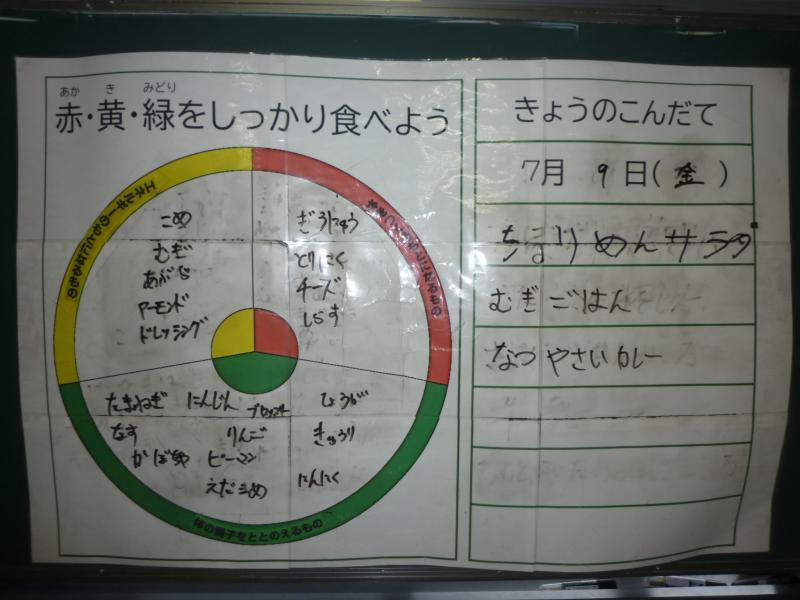 あか き みどり
赤・黄・緑をしっかり食べよう
エネルギーのもとになるもの
こめ
むぎ
あぶら
アーモンド
ドレッシング
ぎうにゅう
とりにく
チーズ
しらす
たまねぎ にんじん しょうが
なす りんご きゅうり
かぼちゃ ピーマン
えだまめ にんにく
体の調子をととのえるもの
きょうのこんだて
7月 9日(金)
ちりめんサラダ
むぎごはん
なつやさいカレー